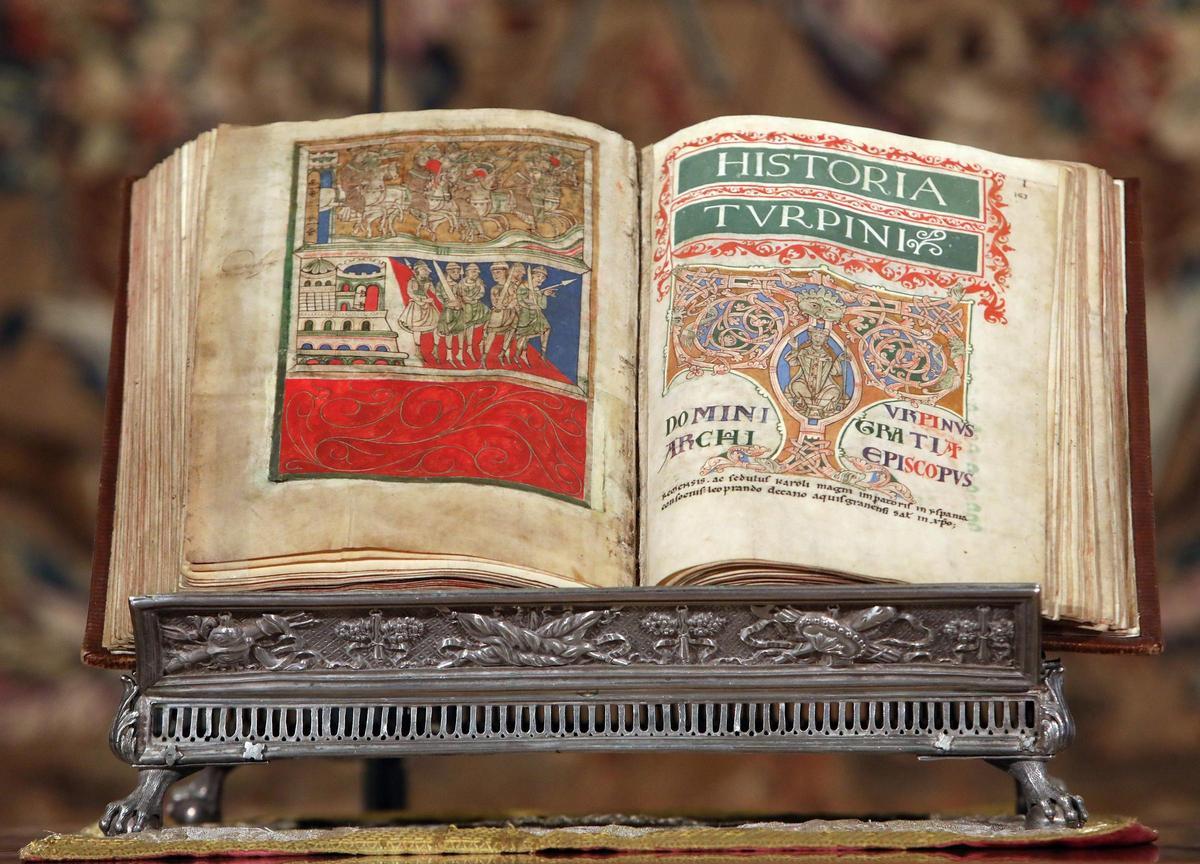 HISTORIA
TVRPINI
DOMINI VRPINVS
ARCHI GRATIA
EPISCOPVS
REMENSIS. ac sedulus karoli magni imperatoris in yspania
consocius. leoprando decano aquisgranensi sat in xpo;
I
163